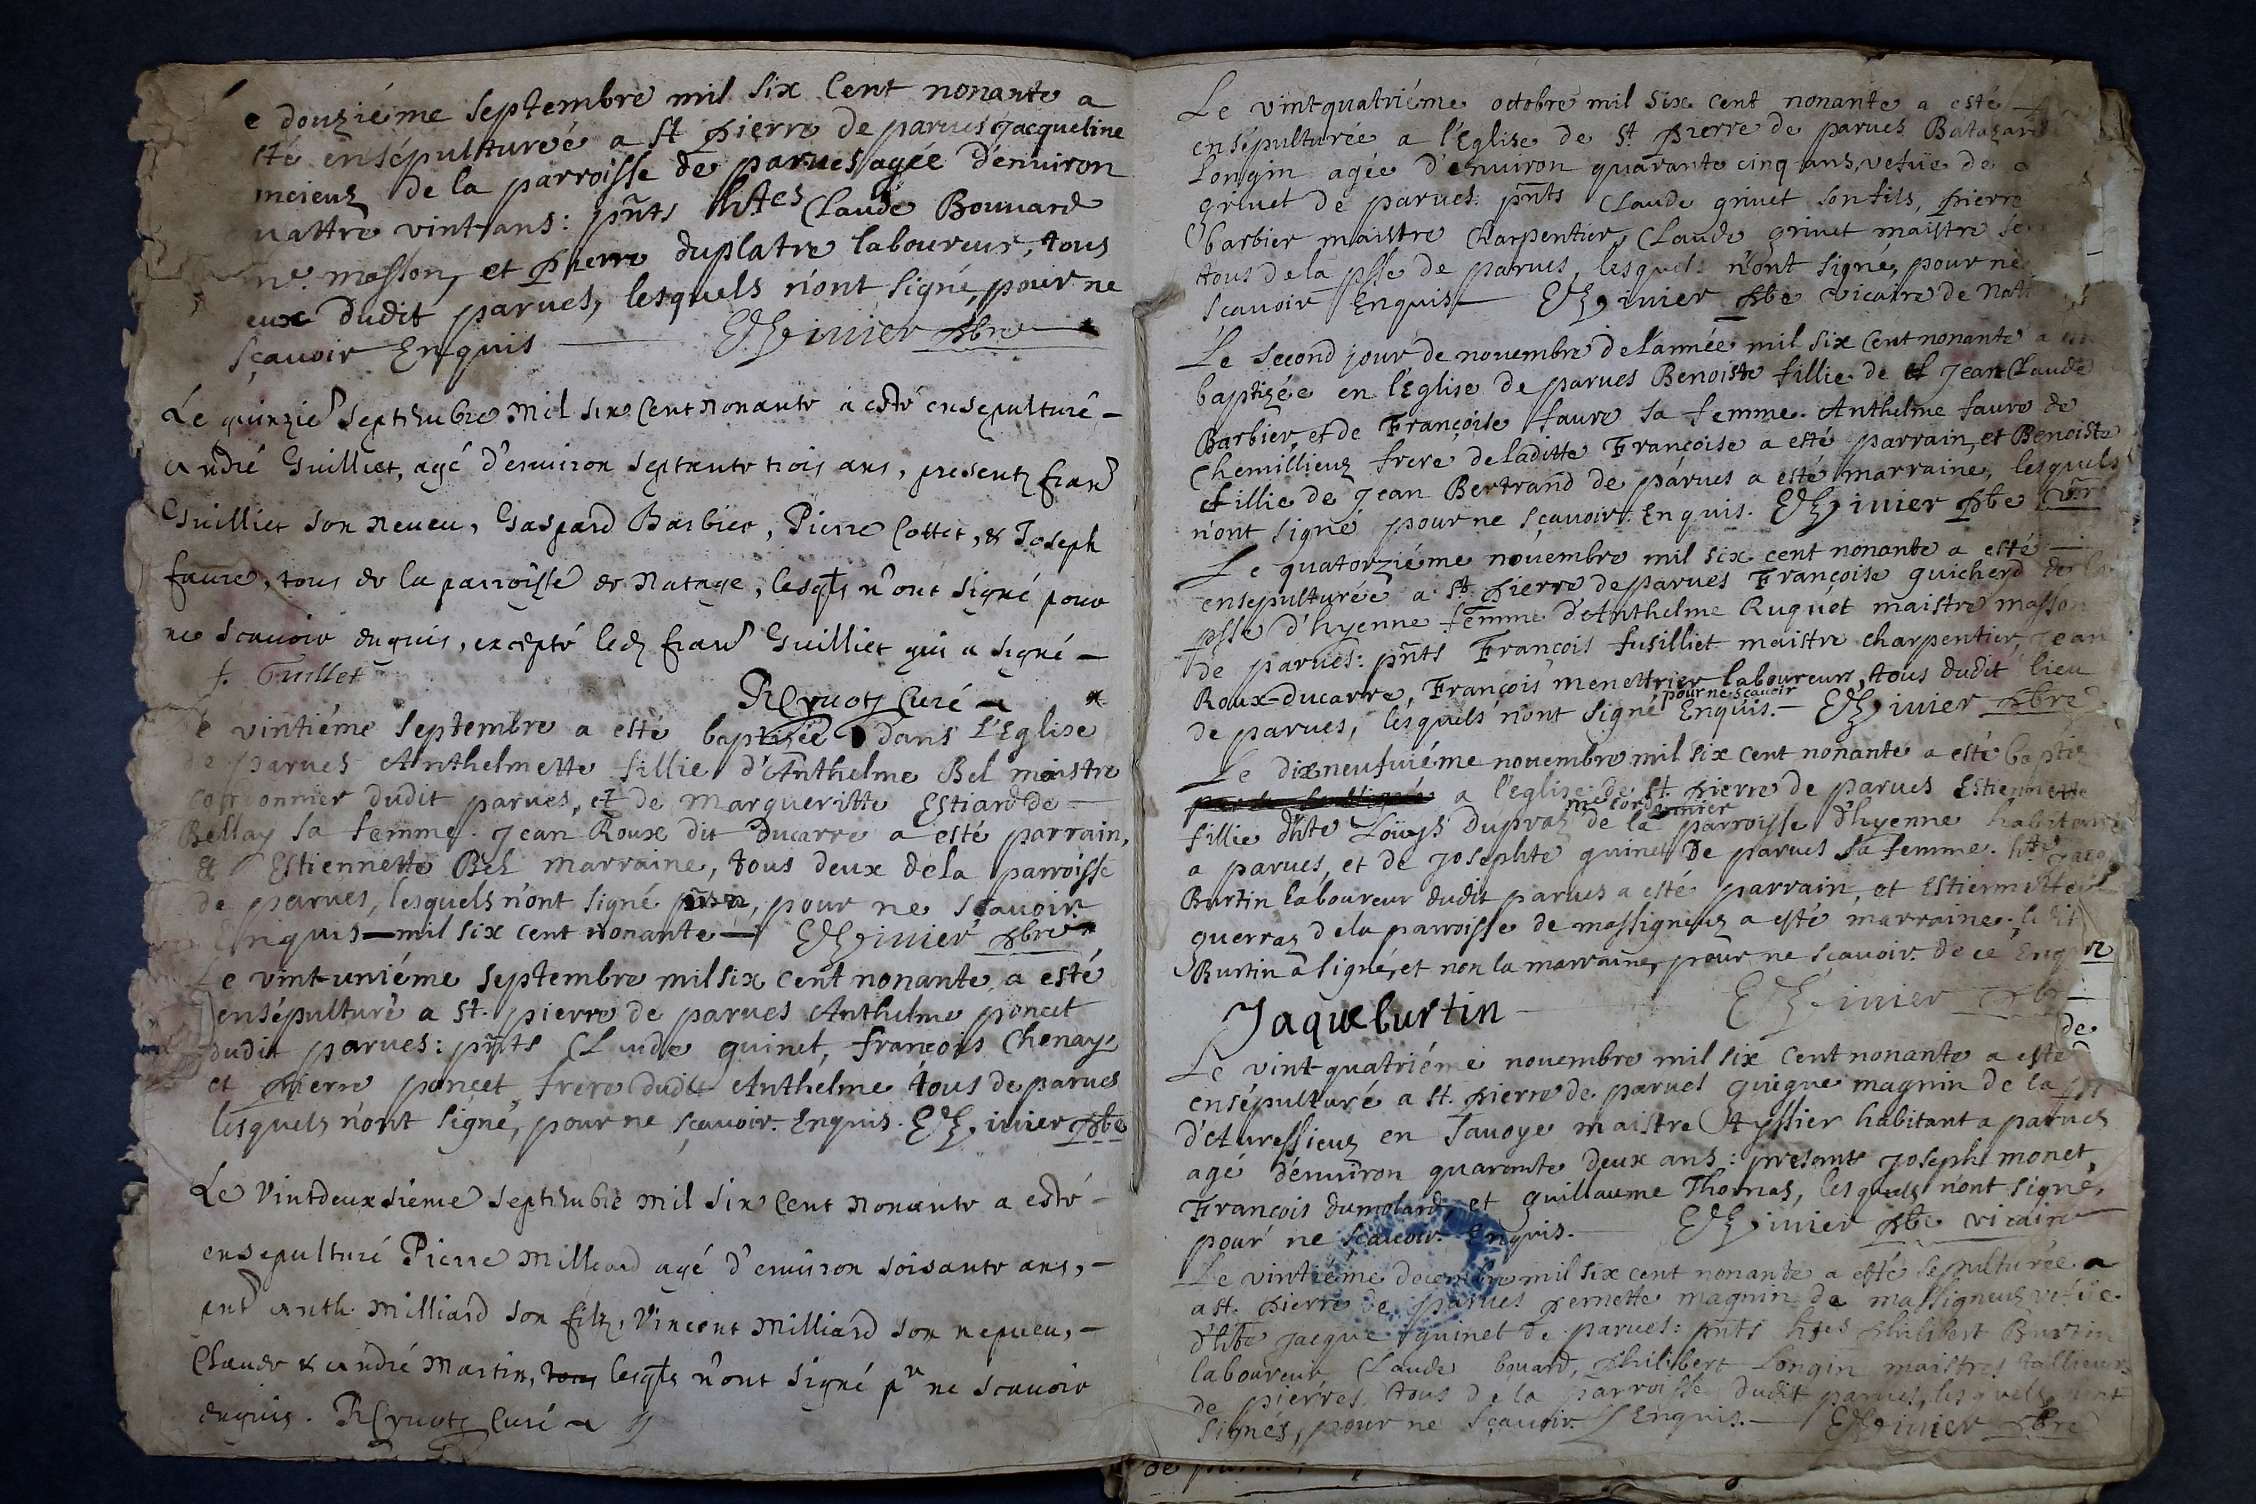 e douziéme septembre mil six cent nonante a
sté ensépulturéé a St pierre de parues Jacqueline
de la parroisse de parues agée d'enuiron
uattre vint ans: pñts htes Claude Bouuard
masson, et pierre duplatre laboureur, tous
eux dudit parues, lesquels n'ont signé, pour ne
sçauoir Enquis — iuier pbre
Le quinzie septembre mil six Cent nonante a esté ensepulturé —
André Guilliet, agé d'enuiron septante trois ans, presentz fran
Guilliet son neueu, Gaspard Barbier, Pierre Cottet, & Joseph
faure, tous de la parroisse de Natage, lesqls n'ont signé pour
ne scauoir enquis, excepté ledz fran Guilliet qui a signé —
f. Guillet
Curé
e vintiéme septembre a esté baptizée dans l'Eglise
de parues Anthelmette fillie d'Anthelme Bel maistre
cordonnier dudit parues, et de Margueritte Estiard de —
Bellay sa femme. Jean Roux dit Ducarre a esté parrain,
& Estiennette Bel marraine, tous deux dela parroisse
de parues, lesquels n'ont signé, pour ne sçauoir.
Enquis — mil six cent nonante — iuier pbre
Le vint-uniéme septembre mil six cent nonante a esté
ensépulturé a St. pierre de parues Anthelme poncet
dudit parues: pñts Claude guinet, françois Chenay
et pierre poncet frere dudit Anthelme tous de parues
lesquels n'ont signé, pour ne sçauoir. Enquis. iuier pbre
Le Vintdeuxsieme septembre mil six Cent nonante a esté —
ensepulturé Pierre Milliard agé d'enuiron soisante ans, —
Anth. Milliard son filz, Vincent Milliard son nepueu, —
Claude & André Martin, tous lesqls n'ont signé pr ne scauoir
enquis. Curé
Le vint-quatriéme octobre mil six cent nonante a esté —
ensépulturée a l'Eglise de St. pierre de parues
Longin agée d'enuiron quarante cinq ans, vefüe de
griuet de parues. pñts Claude griuet son fils, pierre
barbier maistre Charpentier, Claude griuet maistre
tous de la psse de parues, lesquels n'ont signé, pour ne
sçauoir Enquis — iuier pbe vicaire de
Le second jour de nouembre de l'année mil six Cent nonante a
baptizée en l'Eglise de parues Benoiste fillie de Jean Claude
Barbier, et de Françoise faure sa femme. Anthelme faure de
Chemillieuz frere deladitte Françoise a esté parrain, et Benoiste
fillie de Jean Bertrand de parues a esté marraine, lesquels
n'ont signé pour ne sçauoir. Enquis. iuier pbe
Le quatorziéme nouembre mil six cent nonante a esté —
ensepulturéé a St. pierre de parues Françoise guicherd de la
psse d'hyenne femme d'Anthelme Ruquet maistre masson
de parues: pñts François fusilliet maistre charpentier, Jean
Roux-ducarre, François menettrier laboureurs, tous dudit lieu
de parues, lesquels n'ont signé pour ne sçauoir Enquis. — iuier pbre
Le dixneufuiéme nouembre mil six cent nonante a esté
a l'eglise de St. pierre de parues Estiennette
fillie dhte Loüys Dupraz me cordonnier de la parroisse d'hyenne
a parues, et de Josephte guinet De parues sa femme. hte
Burtin laboureur dudit parues a esté parrain, et Estiennette
guerraz dela parroisse de massigneuz a esté marraine. ledit
Burtin a signé, et non la marraine, pour ne sçauoir. de ce
Jaque burtin iuier pbr
de
Le vint-quatriéme nouembre mil six cent nonante a esté
ensépulturé a St. pierre de parues guigue magnin de la
en Sauoye maistre tyssier habitant a parues
agé d'enuiron quarante deux ans: presants Joseph monet,
François dumolard, et guillaume Thomas, lesquels n'ont signé,
pour ne sçauoir Enquis. — iuier pbe vicaire
Le vintiéme decembre mil six cent nonante a esté sepulturée a
a St. pierre de parues pernette magnin de massigneuz vefüe.
d'hte Jacque guinet de parues: pñts htes philibert Burtin
laboureur, Claude bouard, philibert Longin maistres tallieurs
de pierres, tous de la parroisse dudit parues, lesquels n'ont
signés, pour ne sçauoir. Enquis. — iuier pbre